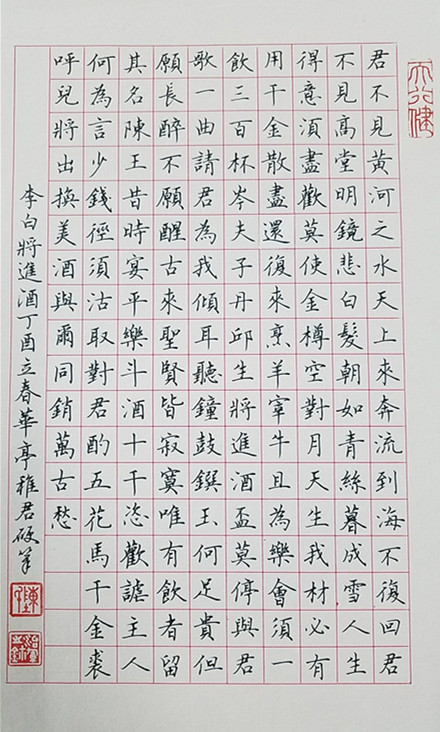 天行健
君不見黃河之水天上來奔流到海不復回君
不見高堂明鏡悲白髮朝如青絲暮成雪人生
得意須盡歡莫使金樽空對月天生我材必有
用千金散盡還復來烹羊宰牛且為樂會須一
飲三百杯岑夫子丹邱生將進酒盃莫停與君
歌一曲請君為我傾耳聽鐘鼓饌玉何足貴但
願長醉不願醒古來聖賢皆寂寞唯有飲者留
其名陳王昔時宴平樂斗酒十千恣歡謔主人
何為言少錢徑須沽取對君酌五花馬千金裘
呼兒將出換美酒與爾同銷萬古愁
李白將進酒丁酉立春華亭稚君